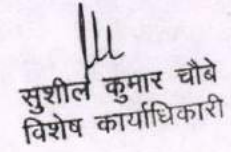 सुशील कुमार चौबे
विशेष कार्याधिकारी